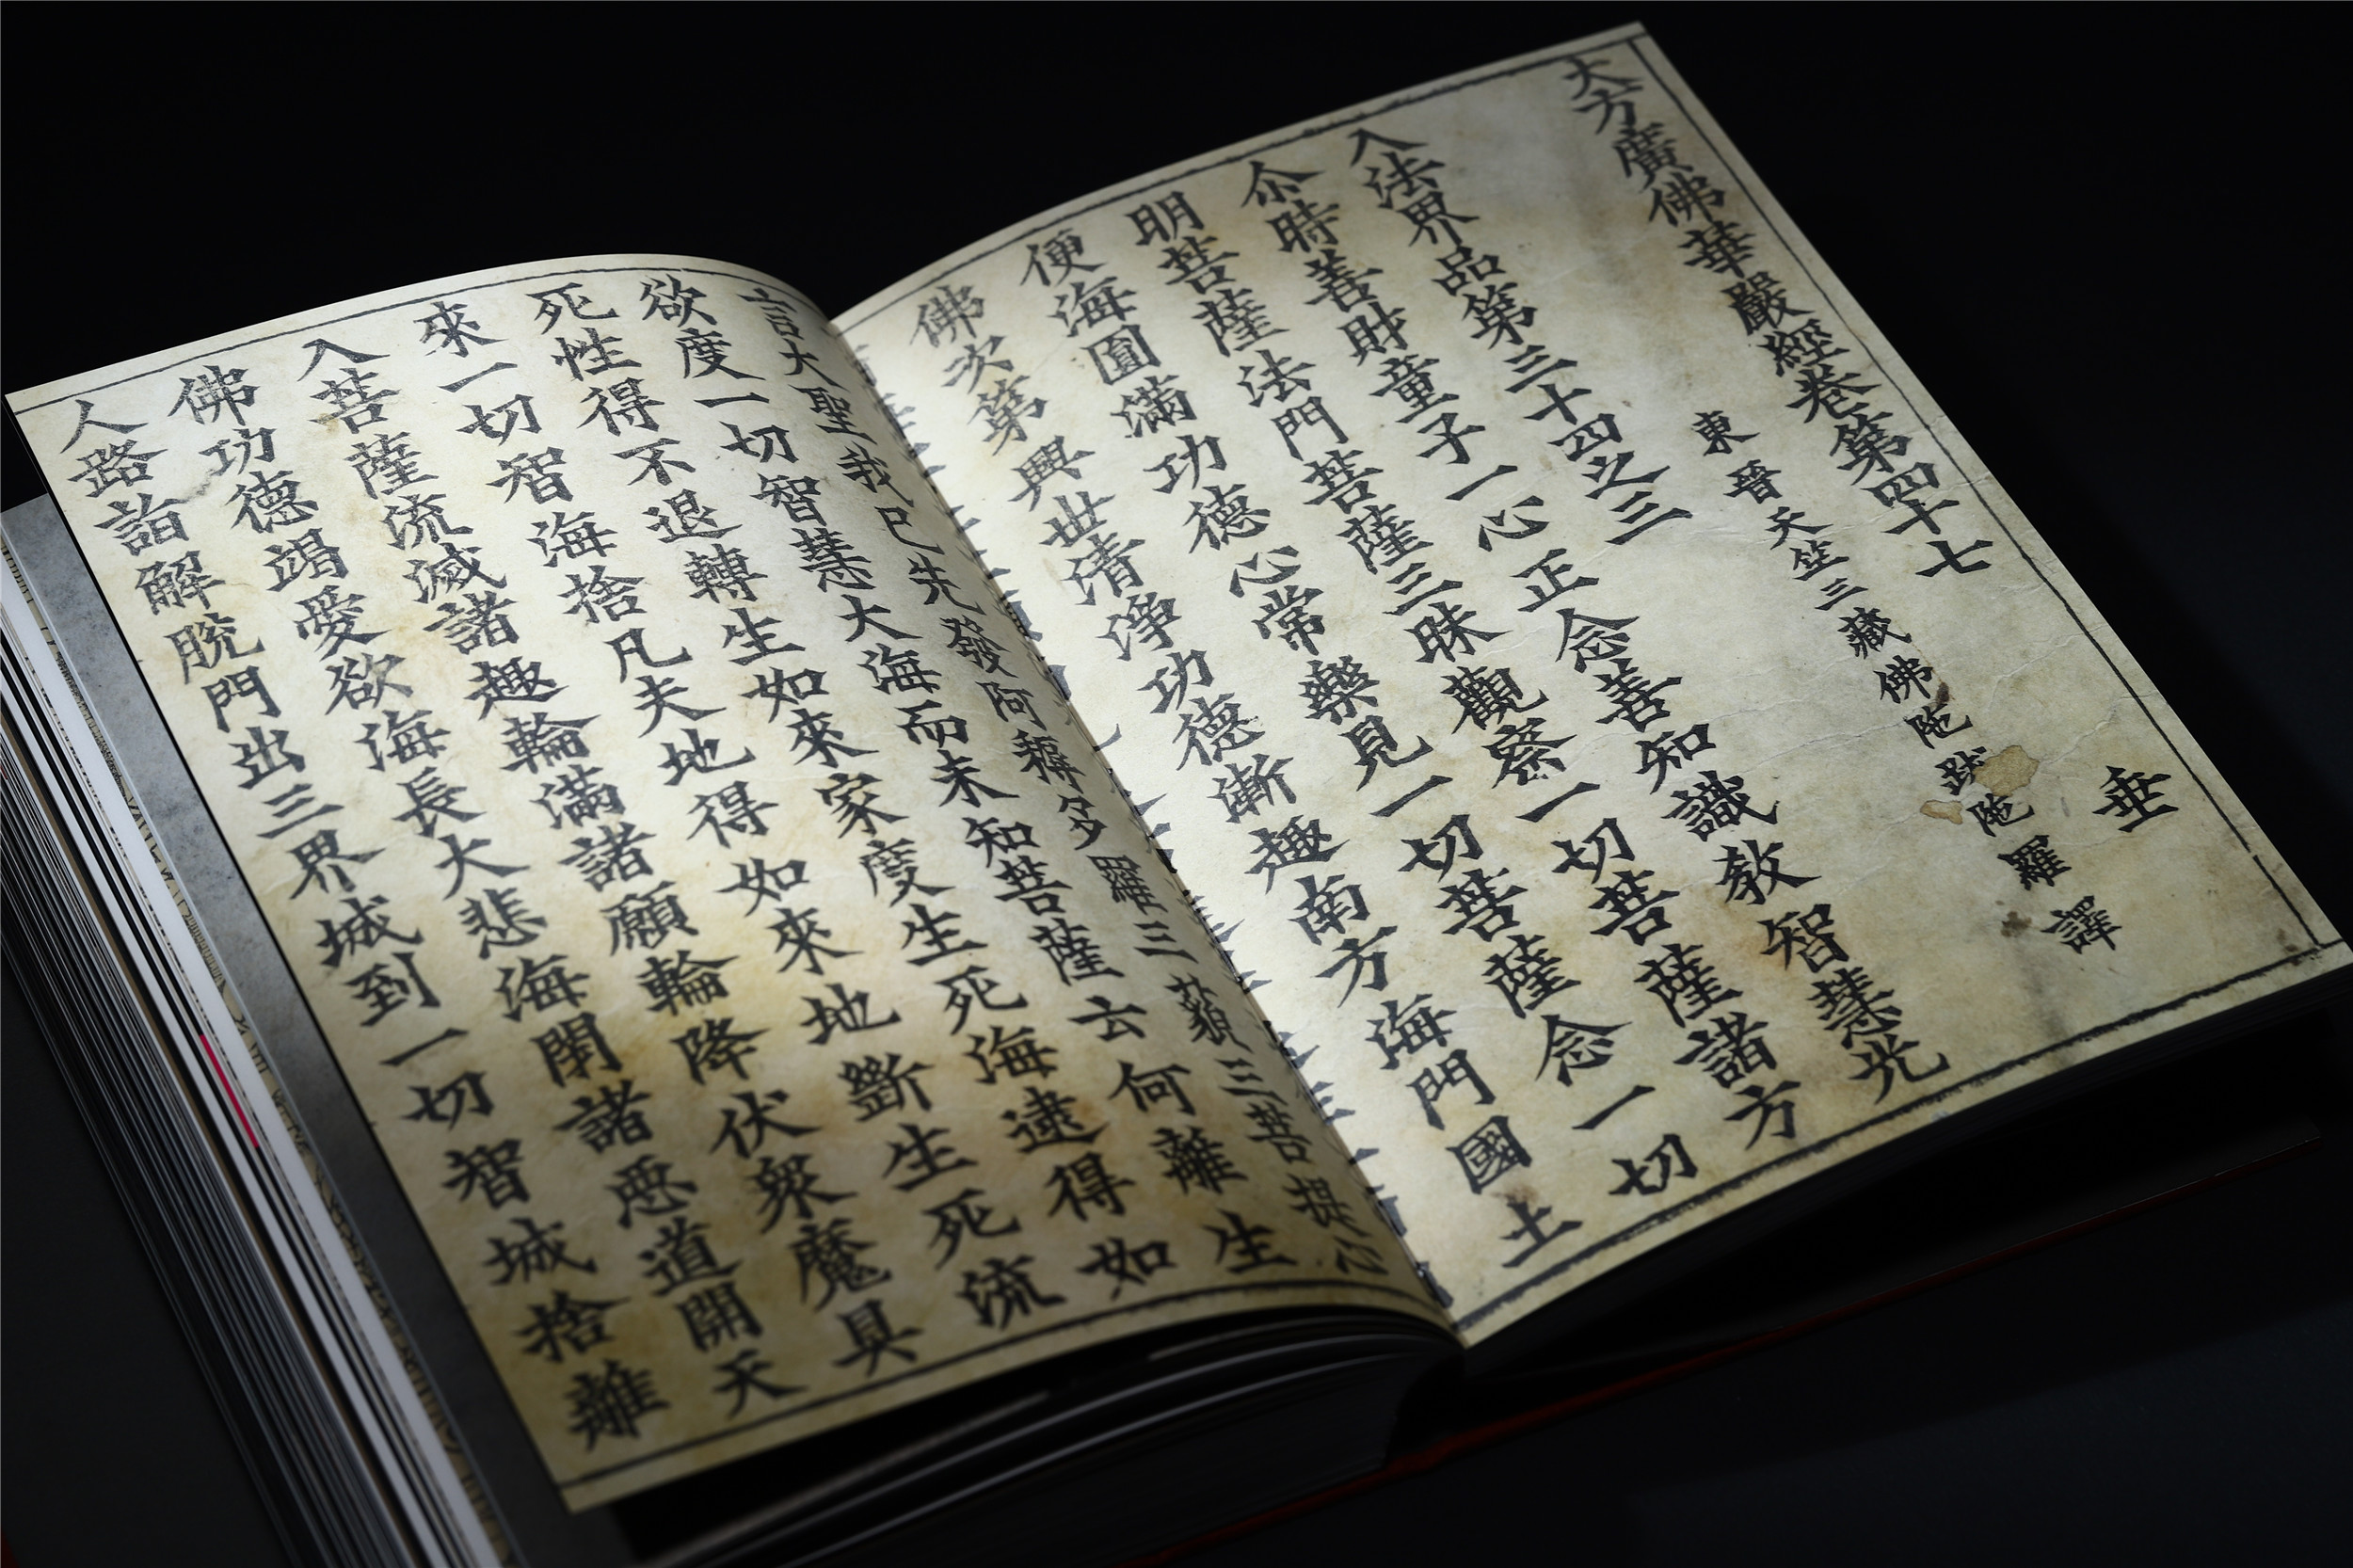 大方廣佛華嚴經卷第四十七 垂
東晉天竺三藏佛陁跋陁羅譯
入法界品第三十四之三
尒時善財童子一心正念善知識教智慧光
明菩薩法門菩薩三昧觀察一切菩薩諸方
便海圓滿功德心常樂見一切菩薩念一切
佛次第興世清淨功德漸趣南方海門國土
言大聖我已先發阿耨多羅三藐三菩提心
欲度一切智慧大海而未知菩薩云何離生
死性得不退轉生如來家度生死海逮得如
來一切智海捨凡夫地得如來地斷生死流
入菩薩流滅諸趣輪滿諸願輪降伏衆魔具
佛功德竭愛欲海長大悲海閉諸惡道開天
人路詣解脫門出三界城到一切智城捨離